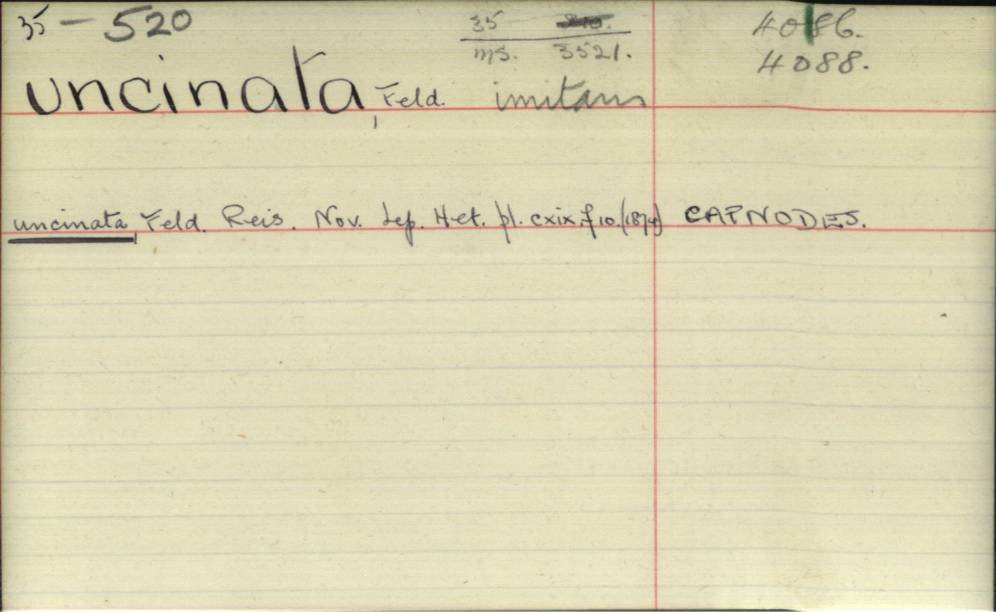 35 - 520
35
ms. 3521.
4086.
4088.
uncinata, Feld. imitans
uncinata, Feld. Reis. Nov. Lep. Het. pl. cxix, f 10. (1874) CAPNODES.